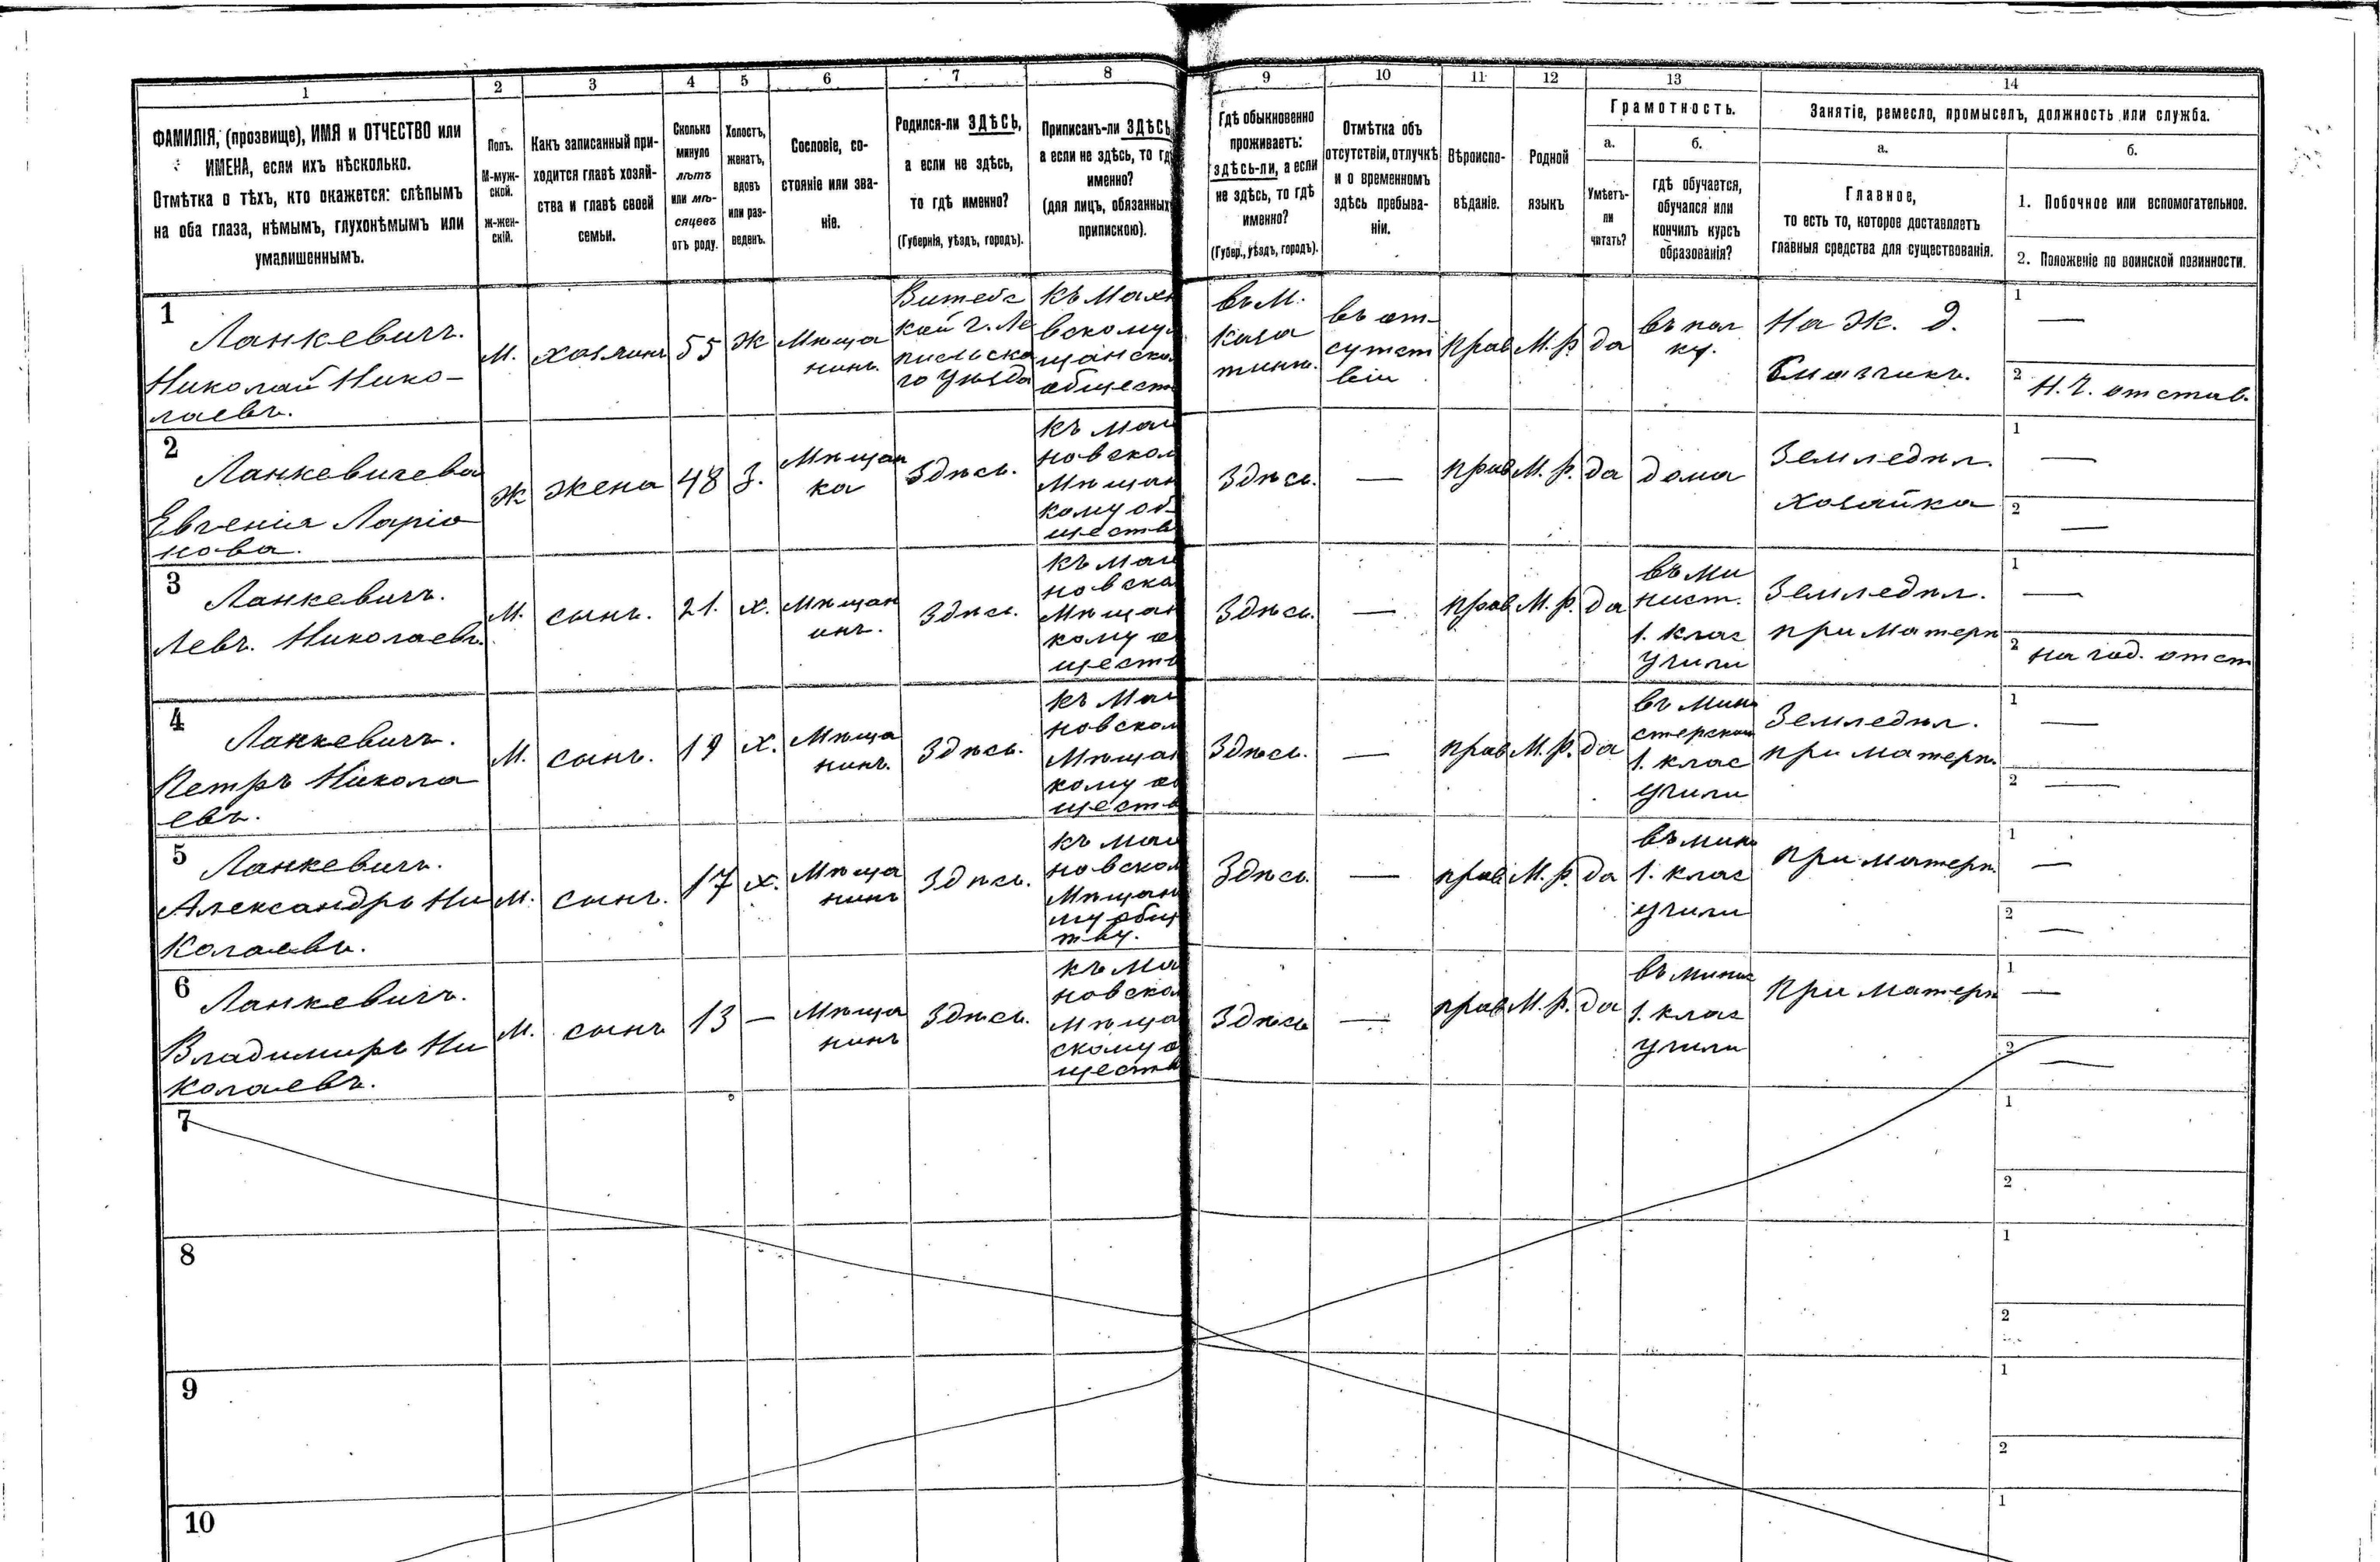 1
2
3
4
5
6
7
8
9
10
11
12
13
14
ФАМИЛІЯ, (прозвище), ИМЯ и ОТЧЕСТВО или
ИМЕНА, если ихъ нѣсколько.
Отмѣтка о тѣхъ, кто окажется: слѣпымъ
на оба глаза, нѣмымъ, глухонѣмымъ или
умалишеннымъ.
Полъ.
М-муж-
ской.
Ж-жен-
скій.
Какъ записанный при-
ходится главѣ хозяй-
ства и главѣ своей
семьи.
Сколько
минуло
лѣтъ
или мѣ-
сяцевъ
отъ роду.
Холостъ,
женатъ,
вдовъ
или раз-
веденъ.
Сословіе, со-
стояніе или зва-
ніе.
Родился-ли ЗДѢСЬ,
а если не здѣсь,
то гдѣ именно?
(Губернія, уѣздъ, городъ).
Приписанъ-ли ЗДѢСЬ
а если не здѣсь, то гд
именно?
(для лицъ, обязанных
припискою).
Гдѣ обыкновенно
проживаетъ:
здѣсь-ли, а если
не здѣсь, то гдѣ
именно?
(Губер., уѣздъ, городъ).
Отмѣтка объ
отсутствіи, отлучкѣ
и о временномъ
здѣсь пребыва-
ніи.
Вѣроиспо-
вѣданіе.
Родной
языкъ
Грамотность.
а.
Умѣетъ-
ли
читать?
б.
гдѣ обучается,
обучался или
кончилъ курсъ
образованія?
Занятіе, ремесло, промыселъ, должность или служба.
а.
Главное,
то есть то, которое доставляетъ
главныя средства для существованія.
б.
1. Побочное или вспомогательное.
2. Положеніе по воинской повинности.
1
Ланкевичъ.
Николай Нико-
лаевъ.
М.
хозяинъ
55
Ж
Мѣща
нинъ.
Витебс
кой г. Ле
пельска
го уѣзда
къ Мах
вскому
щанско
общест
въ М.
ка
въ от-
сутст
віи
прав
М. р.
да
въ пол
ку.
На Ж. д.
Смазчикъ.
1
—
2
Н. Ч. отстав.
2
Ланкевичева
Евгенія Ларіо
нова.
Ж
жена
48
З.
Мѣщан
ка
Здѣсь.
къ Мах
новском
Мѣщан
кому об-
ществ
Здѣсь.
—
прав
М. р.
да
дома
Земледѣл.
хозяйка
1
—
2
—
3
Ланкевичъ.
Левъ. Николаевъ.
М.
сынъ.
21.
х.
Мѣщан
инъ.
Здѣсь.
къ Мах
новско
Мѣщан
кому о
ществ
Здѣсь.
—
прав
М. р.
да
въ ми
нист.
1. клас
учили
Земледѣл.
при матери
1
—
2
на год. отст
4
Ланкевичъ.
Петръ Никола
евъ.
М.
сынъ.
19
х.
Мѣща
нинъ.
Здѣсь.
къ Мах
новском
Мѣщан
кому о
ществ
Здѣсь.
—
прав
М. р.
да
въ мини
стерском
1. клас
учили
Земледѣл.
при матери.
1
—
2
—
5
Ланкевичъ.
Александръ Ни
колаевъ.
М.
сынъ.
17
х.
Мѣща
нинъ
Здѣсь.
къ Мах
новском
Мѣщан
му общ
тву.
Здѣсь.
—
прав
М. р.
да
въ мини
1. клас
учили
при матери.
1
—
2
—
6
Ланкевичъ.
Владимиръ Ни
колаевъ.
М.
сынъ
13
—
Мѣща
нинъ
Здѣсь.
къ Ма
новско
Мѣща
скому о
ществ
Здѣсь
—
прав
М. р.
да
въ минис
1. клас
учили
при матери
1
—
2
—
7
1
2
8
1
2
9
1
2
10
1